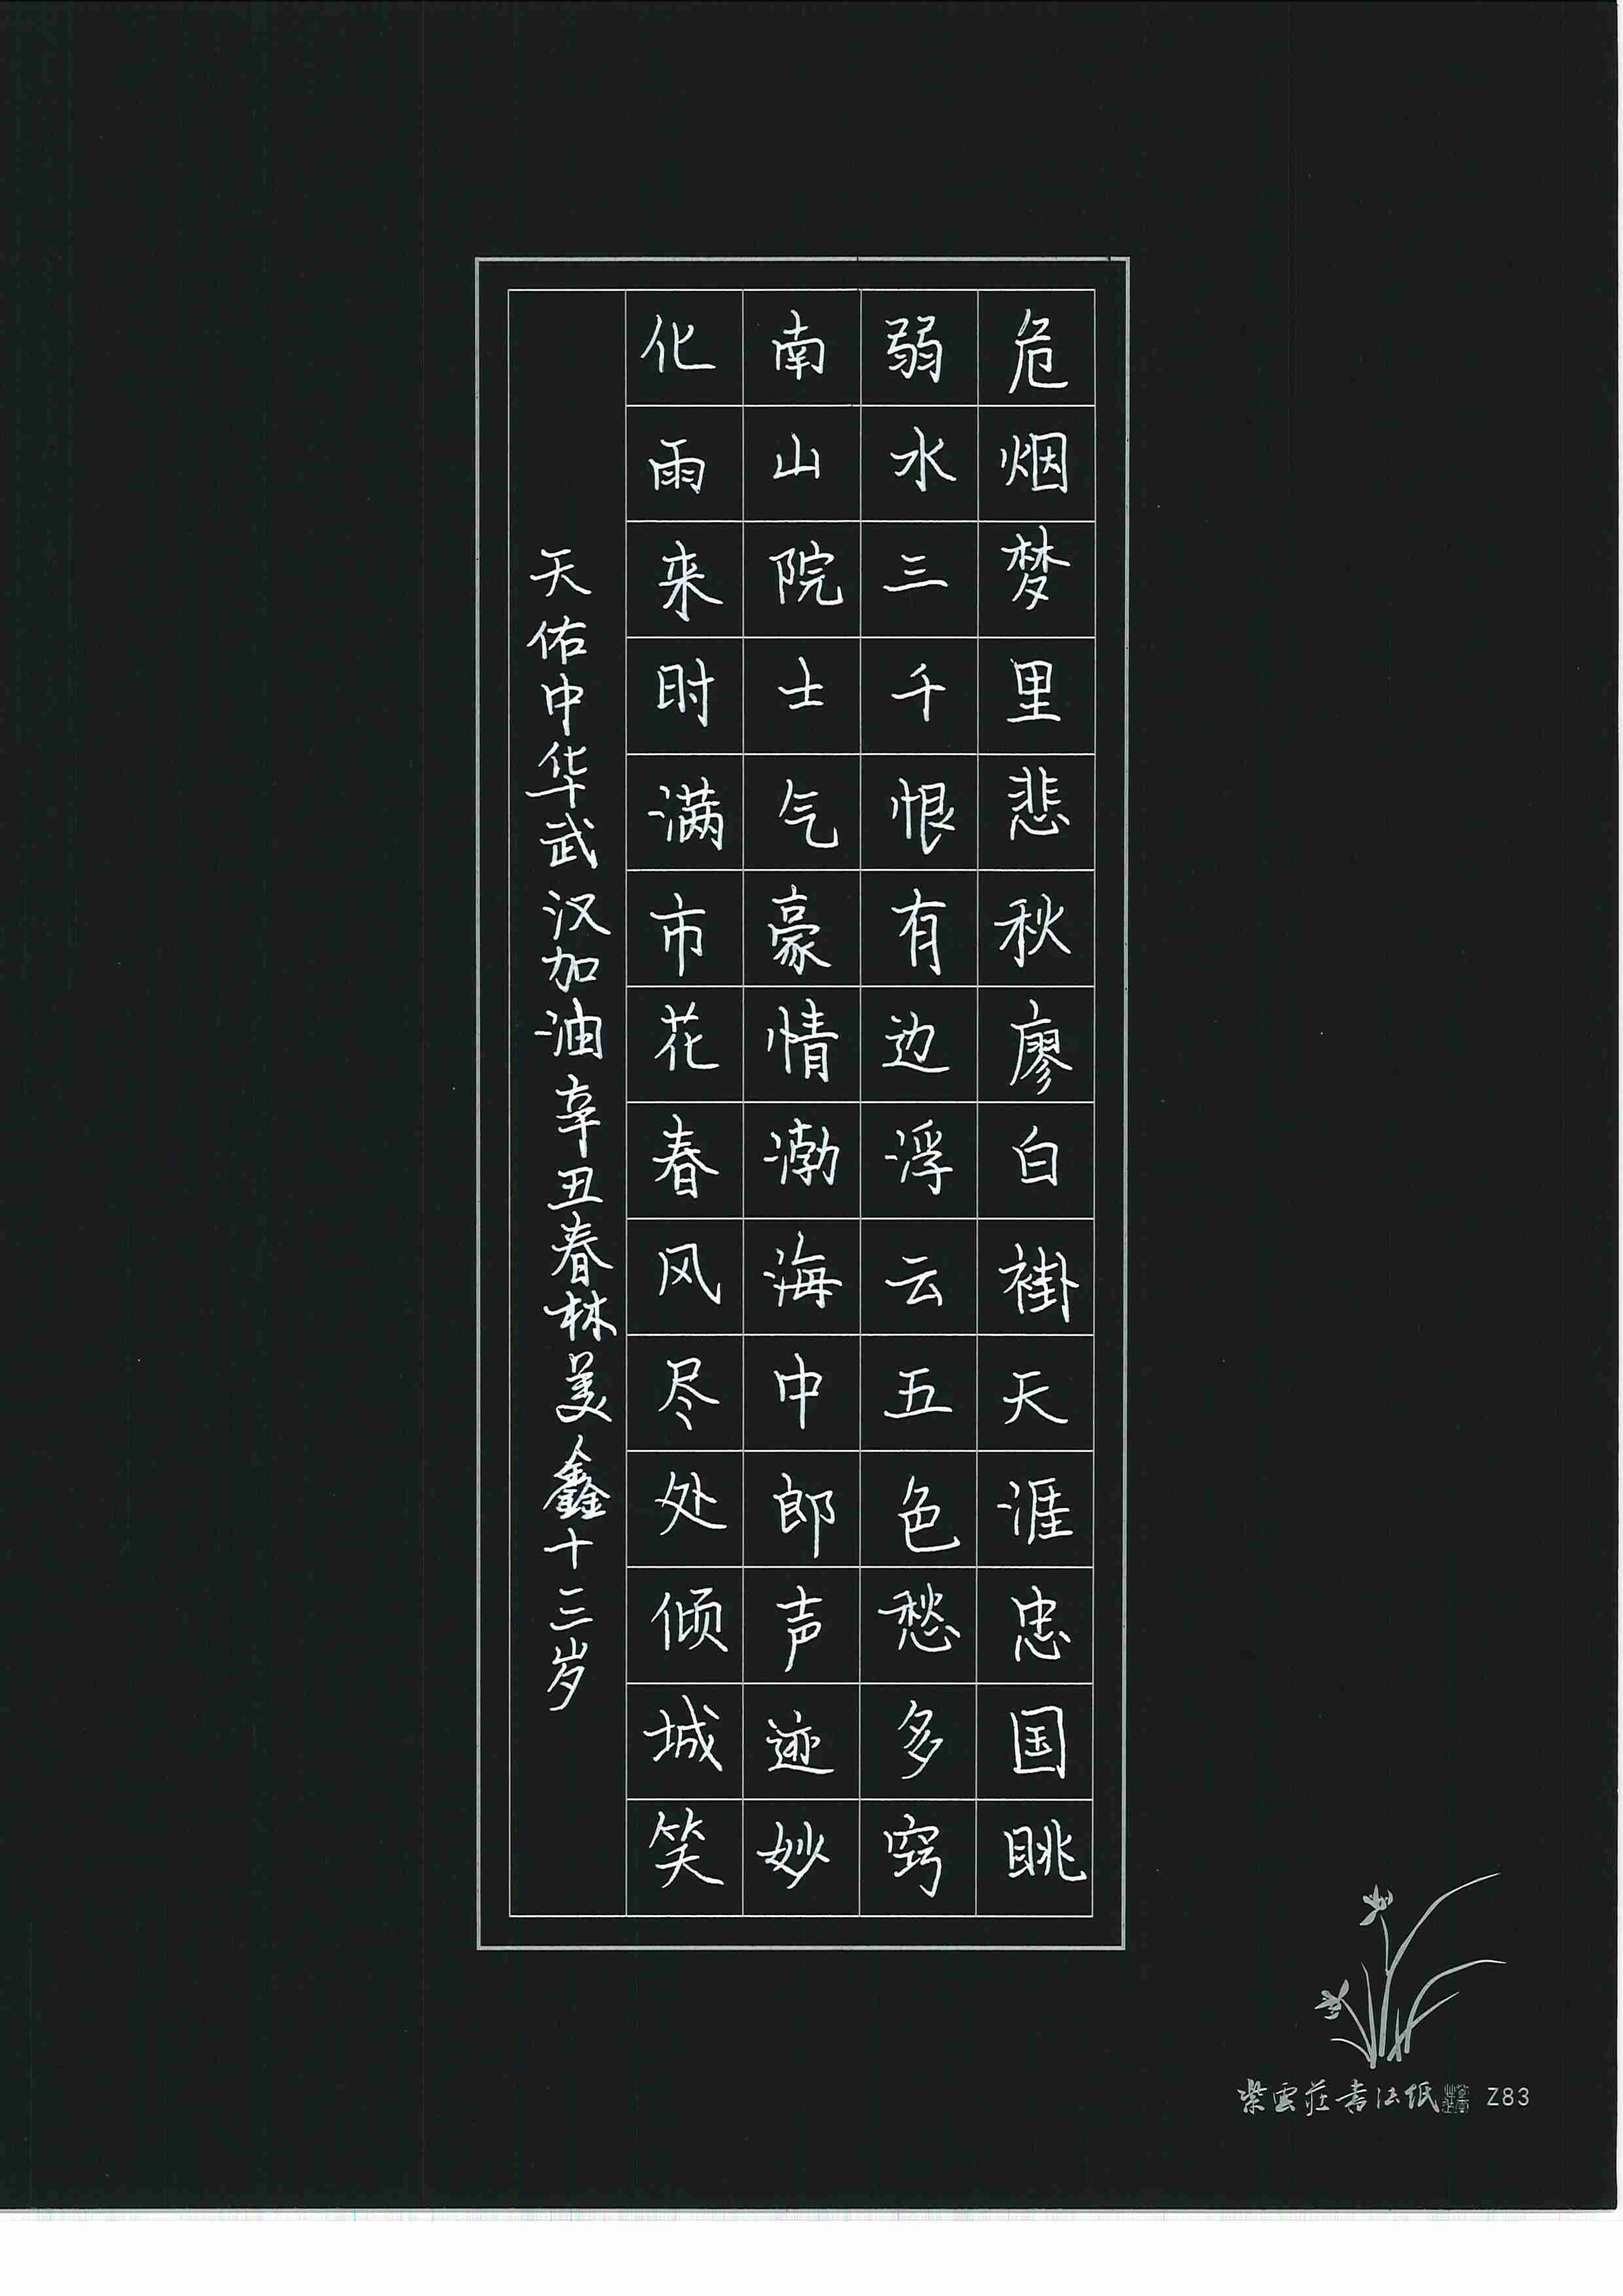 危烟梦里悲秋廖白褂天涯忠国眺
弱水三千恨有边浮云五色愁多窍
南山院士气豪情渤海中郎声迹妙
化雨来时满市花春风尽处倾城笑
天佑中华武汉加油辛丑春林美鑫十三岁
紫雲莊書法纸 Z83